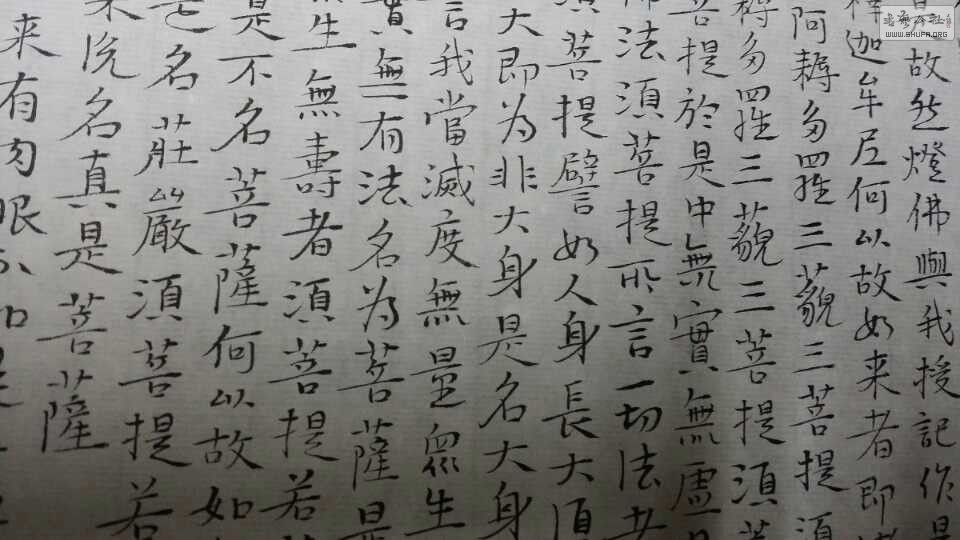 故然燈佛與我授記作是
迦牟尼何以故如来者即諸
阿耨多羅三藐三菩提須
耨多羅三藐三菩提須菩
菩提於是中無實無虛是
佛法須菩提所言一切法者
須菩提譬如人身長大須
大即為非大身是名大身
言我當滅度無量眾生
實無有法名為菩薩是
生無壽者須菩提若
是不名菩薩何以故如
是名莊嚴須菩提若
来說名真是菩薩
来有肉眼不如是
書法本社
WWW.SHUFA.ORG